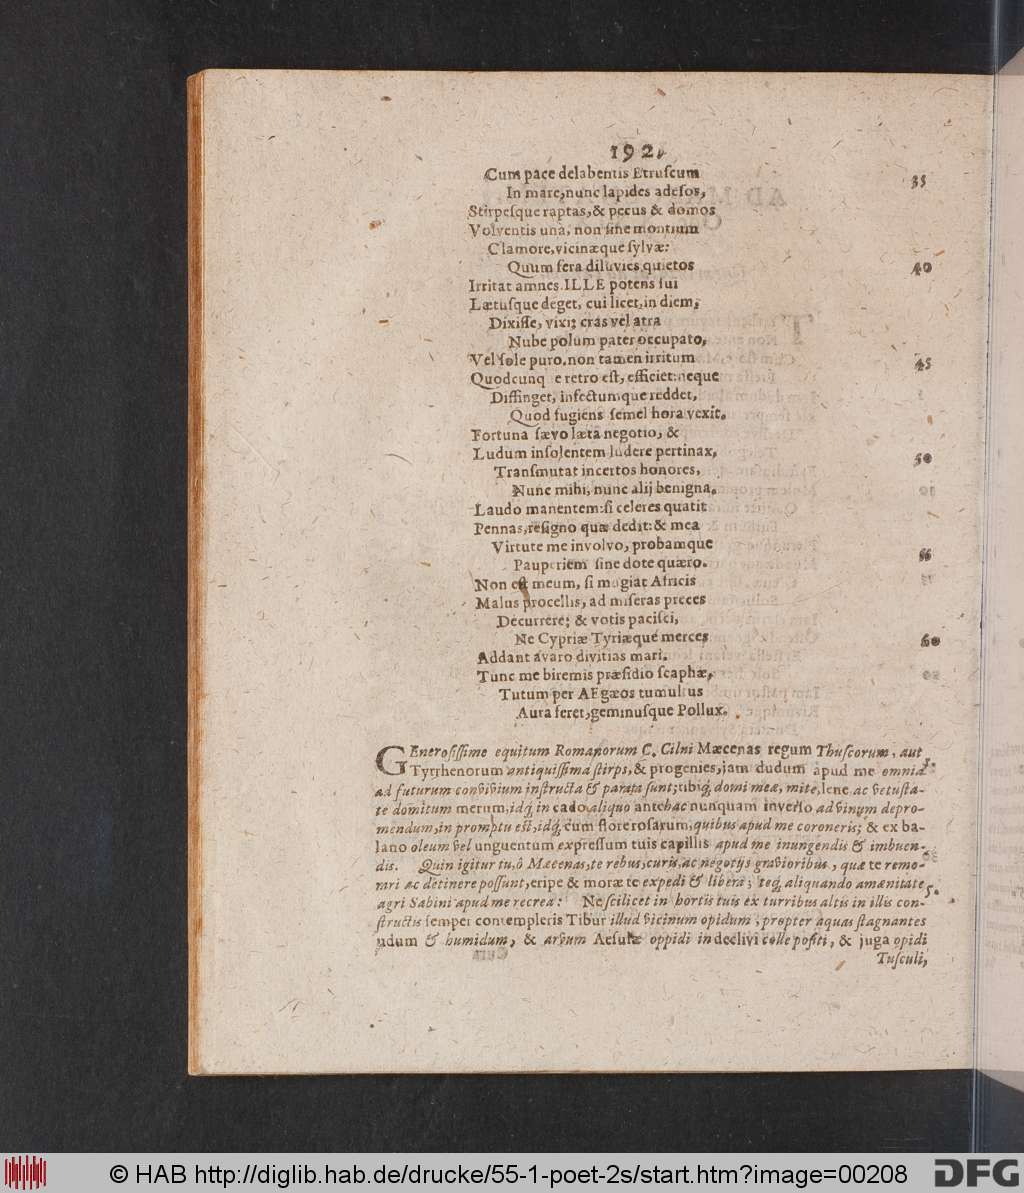 192.
Cum pace delabentis Etruſcum 35
In mare, nunc lapides adeſos,
Stirpeſque raptas, & pecus & domos
Volventis una, non ſine montium
Clamore, vicinæque ſylvæ:
Quum fera diluvies quietos 40
Irritat amnes. ILLE potens ſui
Lætuſque deget, cui licet, in diem,
Dixiſſe, vixi; cras vel atra
Nube polum pater occupato,
Vel ſole puro. non tamen irritum 45
Quodcunq e retro eſt, efficiet: neque
Diffinget, infectumque reddet,
Quod fugiens ſemel hora vexit.
Fortuna ſævo læta negotio, &
Ludum inſolentem ludere pertinax, 50
Tranſmutat incertos honores,
Nunc mihi, nunc alij benigna.
Laudo manentem: ſi celeres quatit
Pennas, reſigno quæ dedit: & mea
Virtute me involvo, probamque 55
Pauperiem ſine dote quæro.
Non eſt meum, ſi mugiat Africis
Malus procellis, ad miſeras preces
Decurrere; & votis paciſci,
Ne Cypriæ Tyriæque merces 60
Addant avaro divitias mari.
Tunc me biremis præſidio ſcaphæ,
Tutum per AEgæos tumultus
Aura feret, geminuſque Pollux.
GEneroſiſſime equitum Romanorum C. Cilni Mæcenas regum Thuſcorum, aut 1.
Tyrrhenorum antiquiſſima ſtirps, & progenies, jam dudum apud me omnia
ad futurum convivium inſtructa & parata ſunt; tibiq́; domi meæ, mite, lene ac vetuſta-
te domitum merum, idq́; in cado aliquo antehac nunquam inverſo ad vinum depro-
mendum, in promptu eſt, idq́; cum flore roſarum, quibus apud me coroneris; & ex ba-
lano oleum vel unguentum expreſſum tuis capillis apud me inungendis & imbuen-
dis. Quin igitur tu, ô Mæcenas, te rebus, curis, ac negotijs gravioribus, quæ te remo-
rari ac detinere poſſunt, eripe & moræ te expedi & libera; teq́; aliquando amœnitate
agri Sabini apud me recrea: Ne ſcilicet in hortis tuis ex turribus altis in illis con- 5.
ſtructis ſemper contempleris Tibur illud vicinum opidum, propter aquas ſtagnantes
udum & humidum, & arvum Aeſulæ oppidi in declivi colle poſiti, & juga opidi
Tuſculi,
© HAB http://diglib.hab.de/drucke/55-1-poet-2s/start.htm?image=00208
DFG